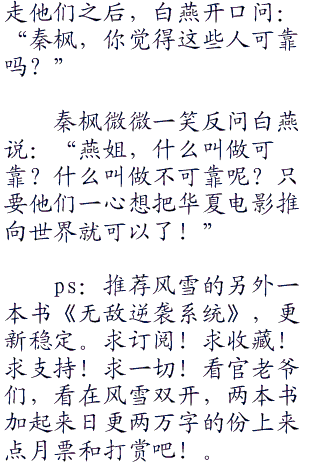 走他们之后，白燕开口问：
“秦枫，你觉得这些人可靠
吗？”
秦枫微微一笑反问白燕
说：“燕姐，什么叫做可
靠？什么叫做不可靠呢？只
要他们一心想把华夏电影推
向世界就可以了！”
ps：推荐风雪的另外一
本书《无敌逆袭系统》，更
新稳定。求订阅！求收藏！
求支持！求一切！看官老爷
们，看在风雪双开，两本书
加起来日更两万字的份上来
点月票和打赏吧！。